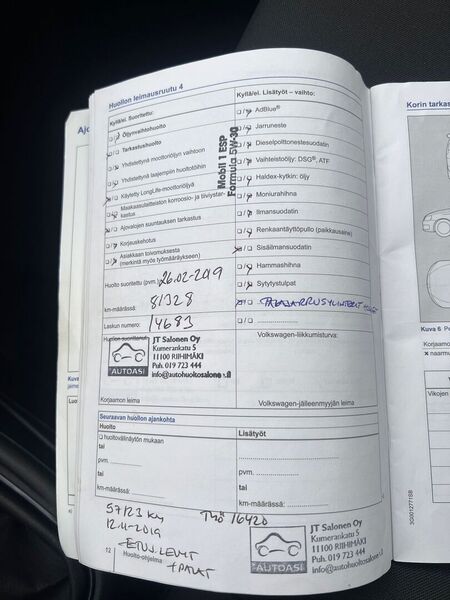 Huollon leimausruutu 4
Kyllä/ei. Suoritettu:
Öljynvaihtohuolto
Tarkastushuolto
Yhdistettynä moottoriöljyn vaihtoon
Yhdistettynä laajempiin huoltotöihin
Käytetty LongLife-moottoriöljyä
Maakaasulaitteiston korroosio- ja tiiviystar-
kastus
Ajovalojen suuntauksen tarkastus
Korjauskehotus
Asiakkaan toivomuksesta
(merkintä myös työmääräykseen)
Mobil 1 ESP
Formula 5W-30
Huolto suoritettu (pvm.) 26.02-2019
km-määrässä: 81328
Laskun numero: 14683
Huollon suorittanut:
AUTOASI
JT Salonen Oy
Kumerankatu 5
11100 RIIHIMÄKI
Puh. 019 723 444
info@autohuoltosalone .fi
Korjaamon leima
Kyllä/ei. Lisätyöt – vaihto:
AdBlue®
Jarruneste
Dieselpolttonestesuodatin
Vaihteistoöljy: DSG®, ATF
Haldex-kytkin: öljy
Moniurahihna
Ilmansuodatin
Renkaantäyttöpullo (paikkausaine)
Sisäilmansuodatin
Hammashihna
Sytytystulpat
Volkswagen-liikkumisturva:
Volkswagen-jälleenmyyjän leima
Seuraavan huollon ajankohta
Huolto
huoltovälinäytön mukaan
tai
pvm.
tai
km-määrässä:
Lisätyöt
pvm.
tai
km-määrässä:
57123 km
12.11-2019
TYÖ 16420
ETUJ.LEVYT
+ PALAT
AUTOASI
JT Salonen Oy
Kumerankatu 5
11100 RIIHIMÄKI
Puh. 019 723 444
12
Huolto-ohjelma
Ajo
Kuva
Korin tarkas
Kuva 6
Korjaamo
naarmu
Vikojen
3G0012771SB